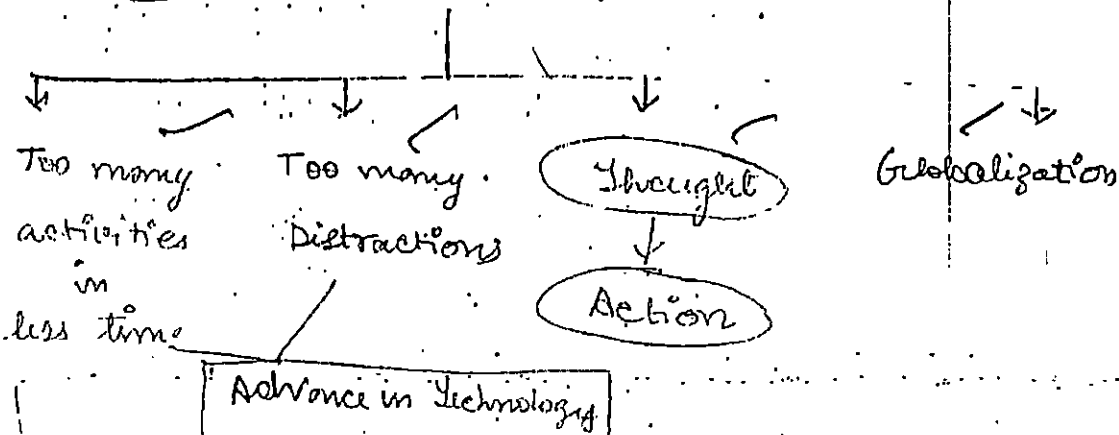 Too many
activities
in
less time
Too many
Distractions
Thought
Action
Globalization
Advance in Technology